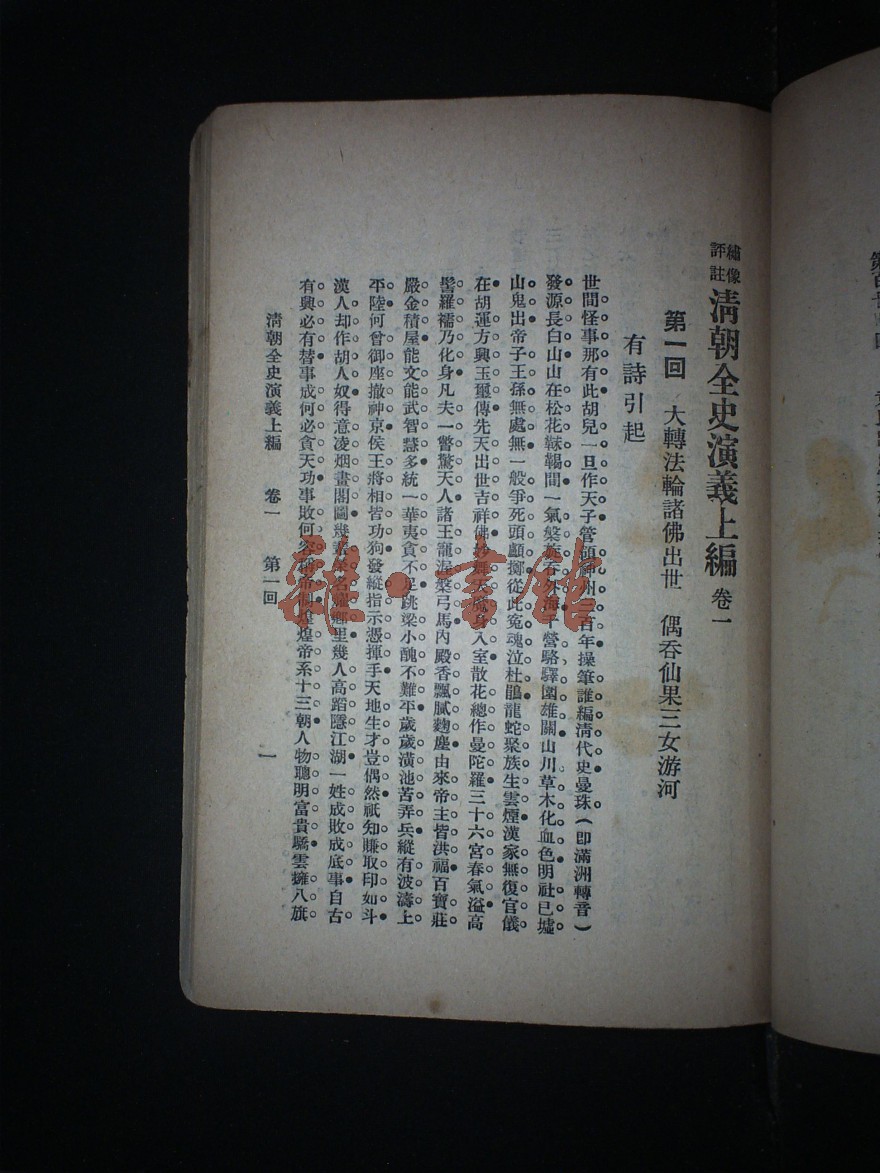 繡像
評註
清朝全史演義上編 卷一
第一回 大轉法輪諸佛出世 偶吞仙果三女游河
有詩引起
世間怪事那有此胡兒一旦作天子管領神州三百年操筆誰編清代史曼珠(即滿洲轉音)
發源長白山山在松花靺鞨間一氣盤旋吞外海千營駱驛圍雄關山川草木化血色明社已墟
山鬼出帝子王孫無處無一般爭死頭顱擲從此冤魂泣杜鵑龍蛇聚族生雲煙漢家無復官儀
在胡運方興玉璽傳先天出世吉祥佛天魔身入室散花總作曼陀羅三十六宮春氣溢高
髻羅襦乃化身凡夫一瞥驚天人諸王寵渥槃弓馬內殿香飄膩麴塵由來帝主皆洪福百寶莊
嚴金積屋能文能武智慧多統一華夷貪不足跳梁小醜不難平歲歲潢池苦弄兵縱有波濤上
平陸何曾御座撤神京侯王將相皆功狗發縱指示憑揮手天地生才豈偶然祇知賺取印如斗
漢人却作胡人奴得意凌烟畫閣圖幾名耀鄉里幾人高蹈隱江湖一姓成敗成底事自古
有興必有替事成何必貪天功事敗何帝制煌煌帝系十三朝人物聰明富貴驕雲擁八旗
清朝全史演義上編 卷一 第一回 一
雜·書館